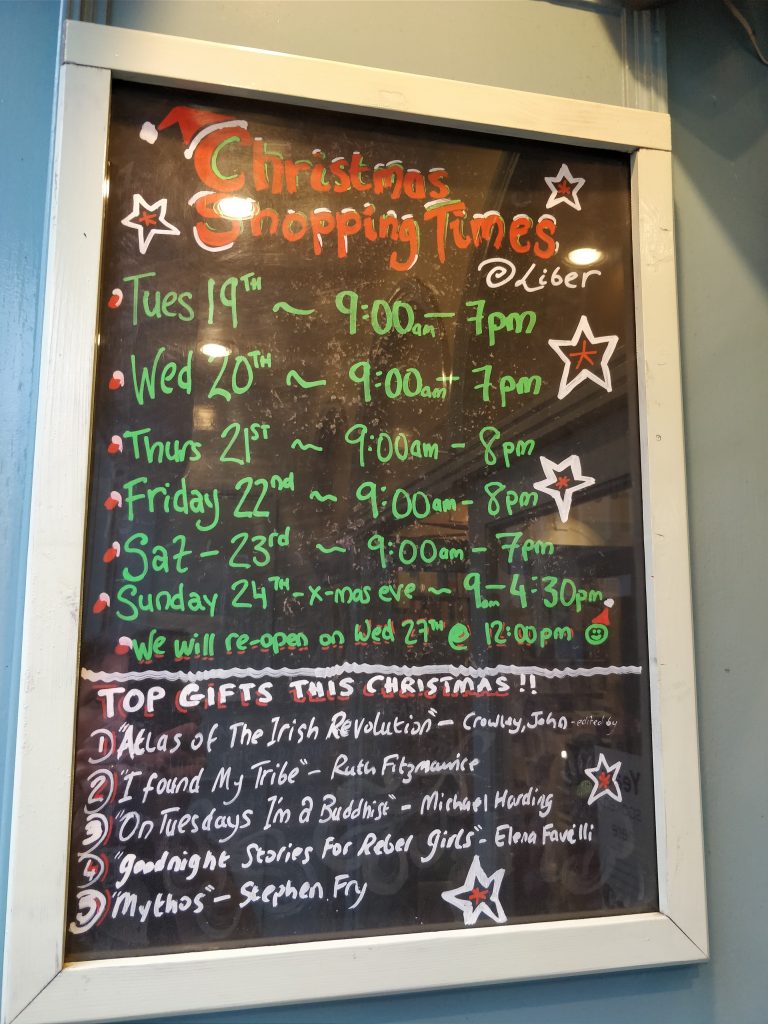 Christmas
Shopping Times
@ Liber
Tues 19TH ~ 9:00am - 7pm
Wed 20TH ~ 9:00am - 7pm
Thurs 21ST ~ 9:00am - 8pm
Friday 22nd ~ 9:00am - 8pm
Sat - 23rd ~ 9:00am - 7pm
Sunday 24TH - x-mas eve ~ 9am - 4:30pm
We will re-open on Wed 27TH @ 12:00pm
TOP GIFTS THIS CHRISTMAS!!
1 "Atlas of The Irish Revolution" - Crowley, John - edited by
2 "I found My Tribe" - Ruth Fitzmaurice
3 "On Tuesdays I'm a Buddhist" - Michael Harding
4 "goodnight Stories For Rebel girls" - Elena Favilli
5 "Mythos" - Stephen Fry